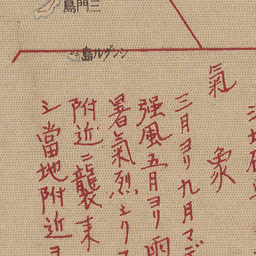 三門島
シングル島
氣象
三月ヨリ九月マデ
强風五月ヨリ雨
暑氣烈シク
附近ニ襲来
シ當地附近ヲ